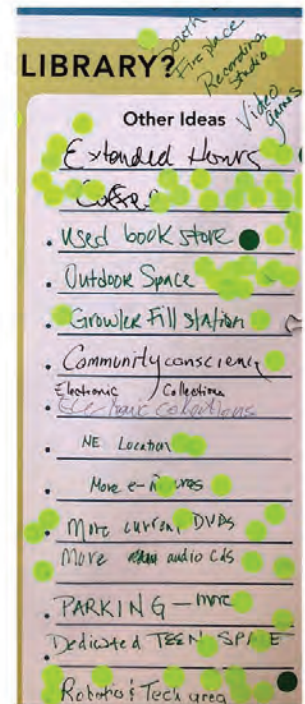 South
Fireplace
Recording
Studio
Video
games
LIBRARY?
Other Ideas
Extended Hours
Coffee
• Used book store
• Outdoor Space
• Growler Fill Station
• Community
Electronic Collections
• Electronic collections
• NE Location
• More e-
• More current DVDs
More audio Cds
• PARKING - more
• Dedicated TEEN SPACE
• Robotics & Tech area